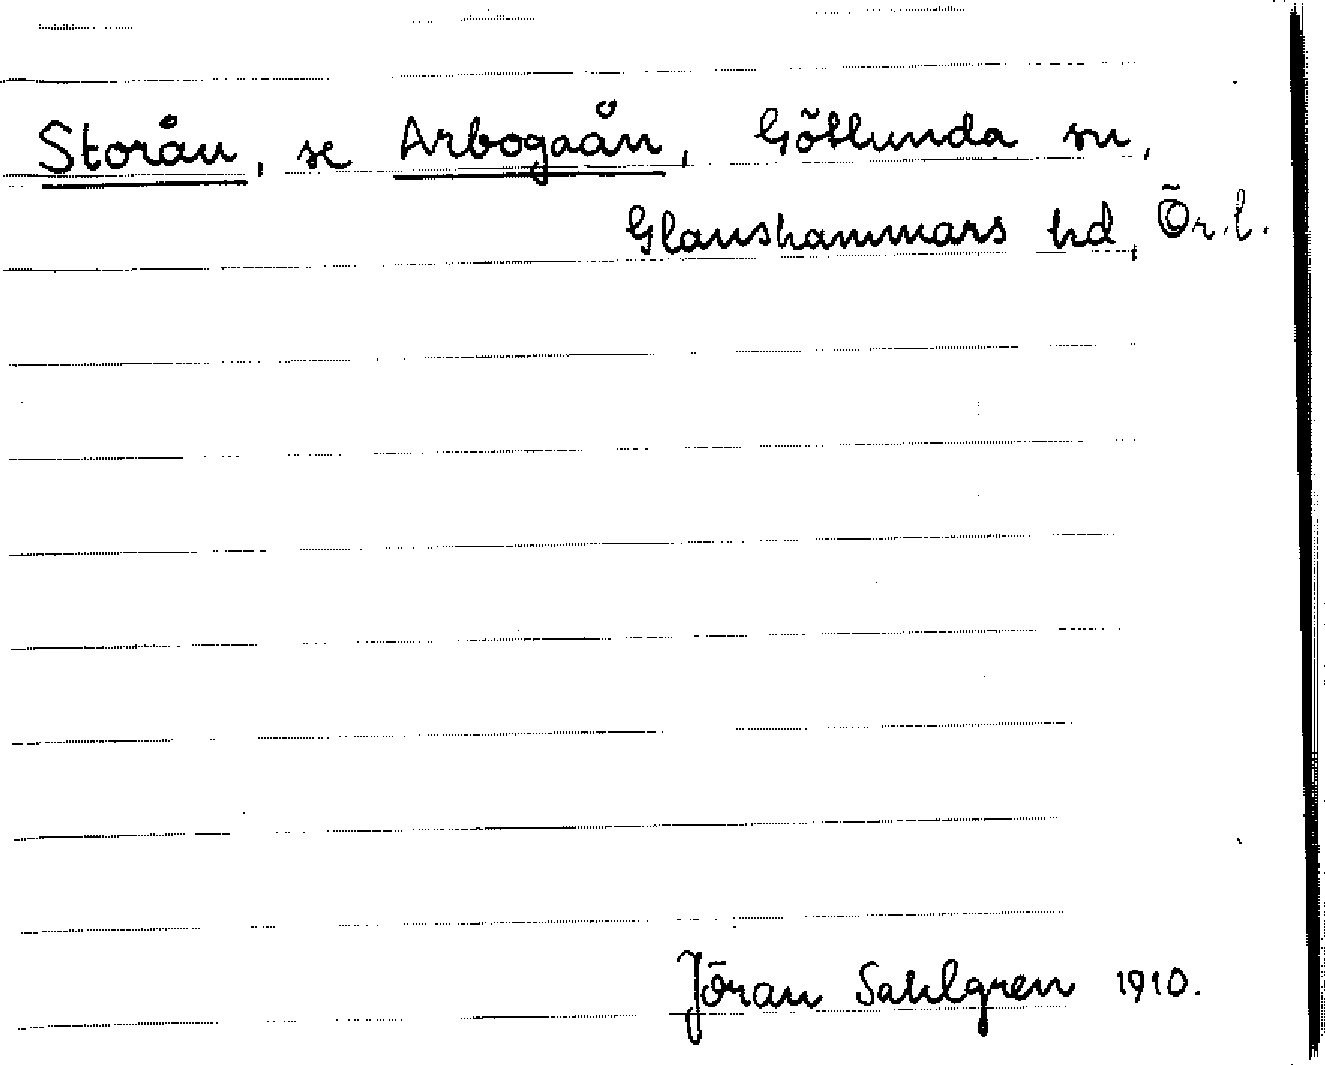 Storån, se Arbogaån, Götlunda sn,
Glanshammars hd, Ör.l.
Jöran Sahlgren 1910.